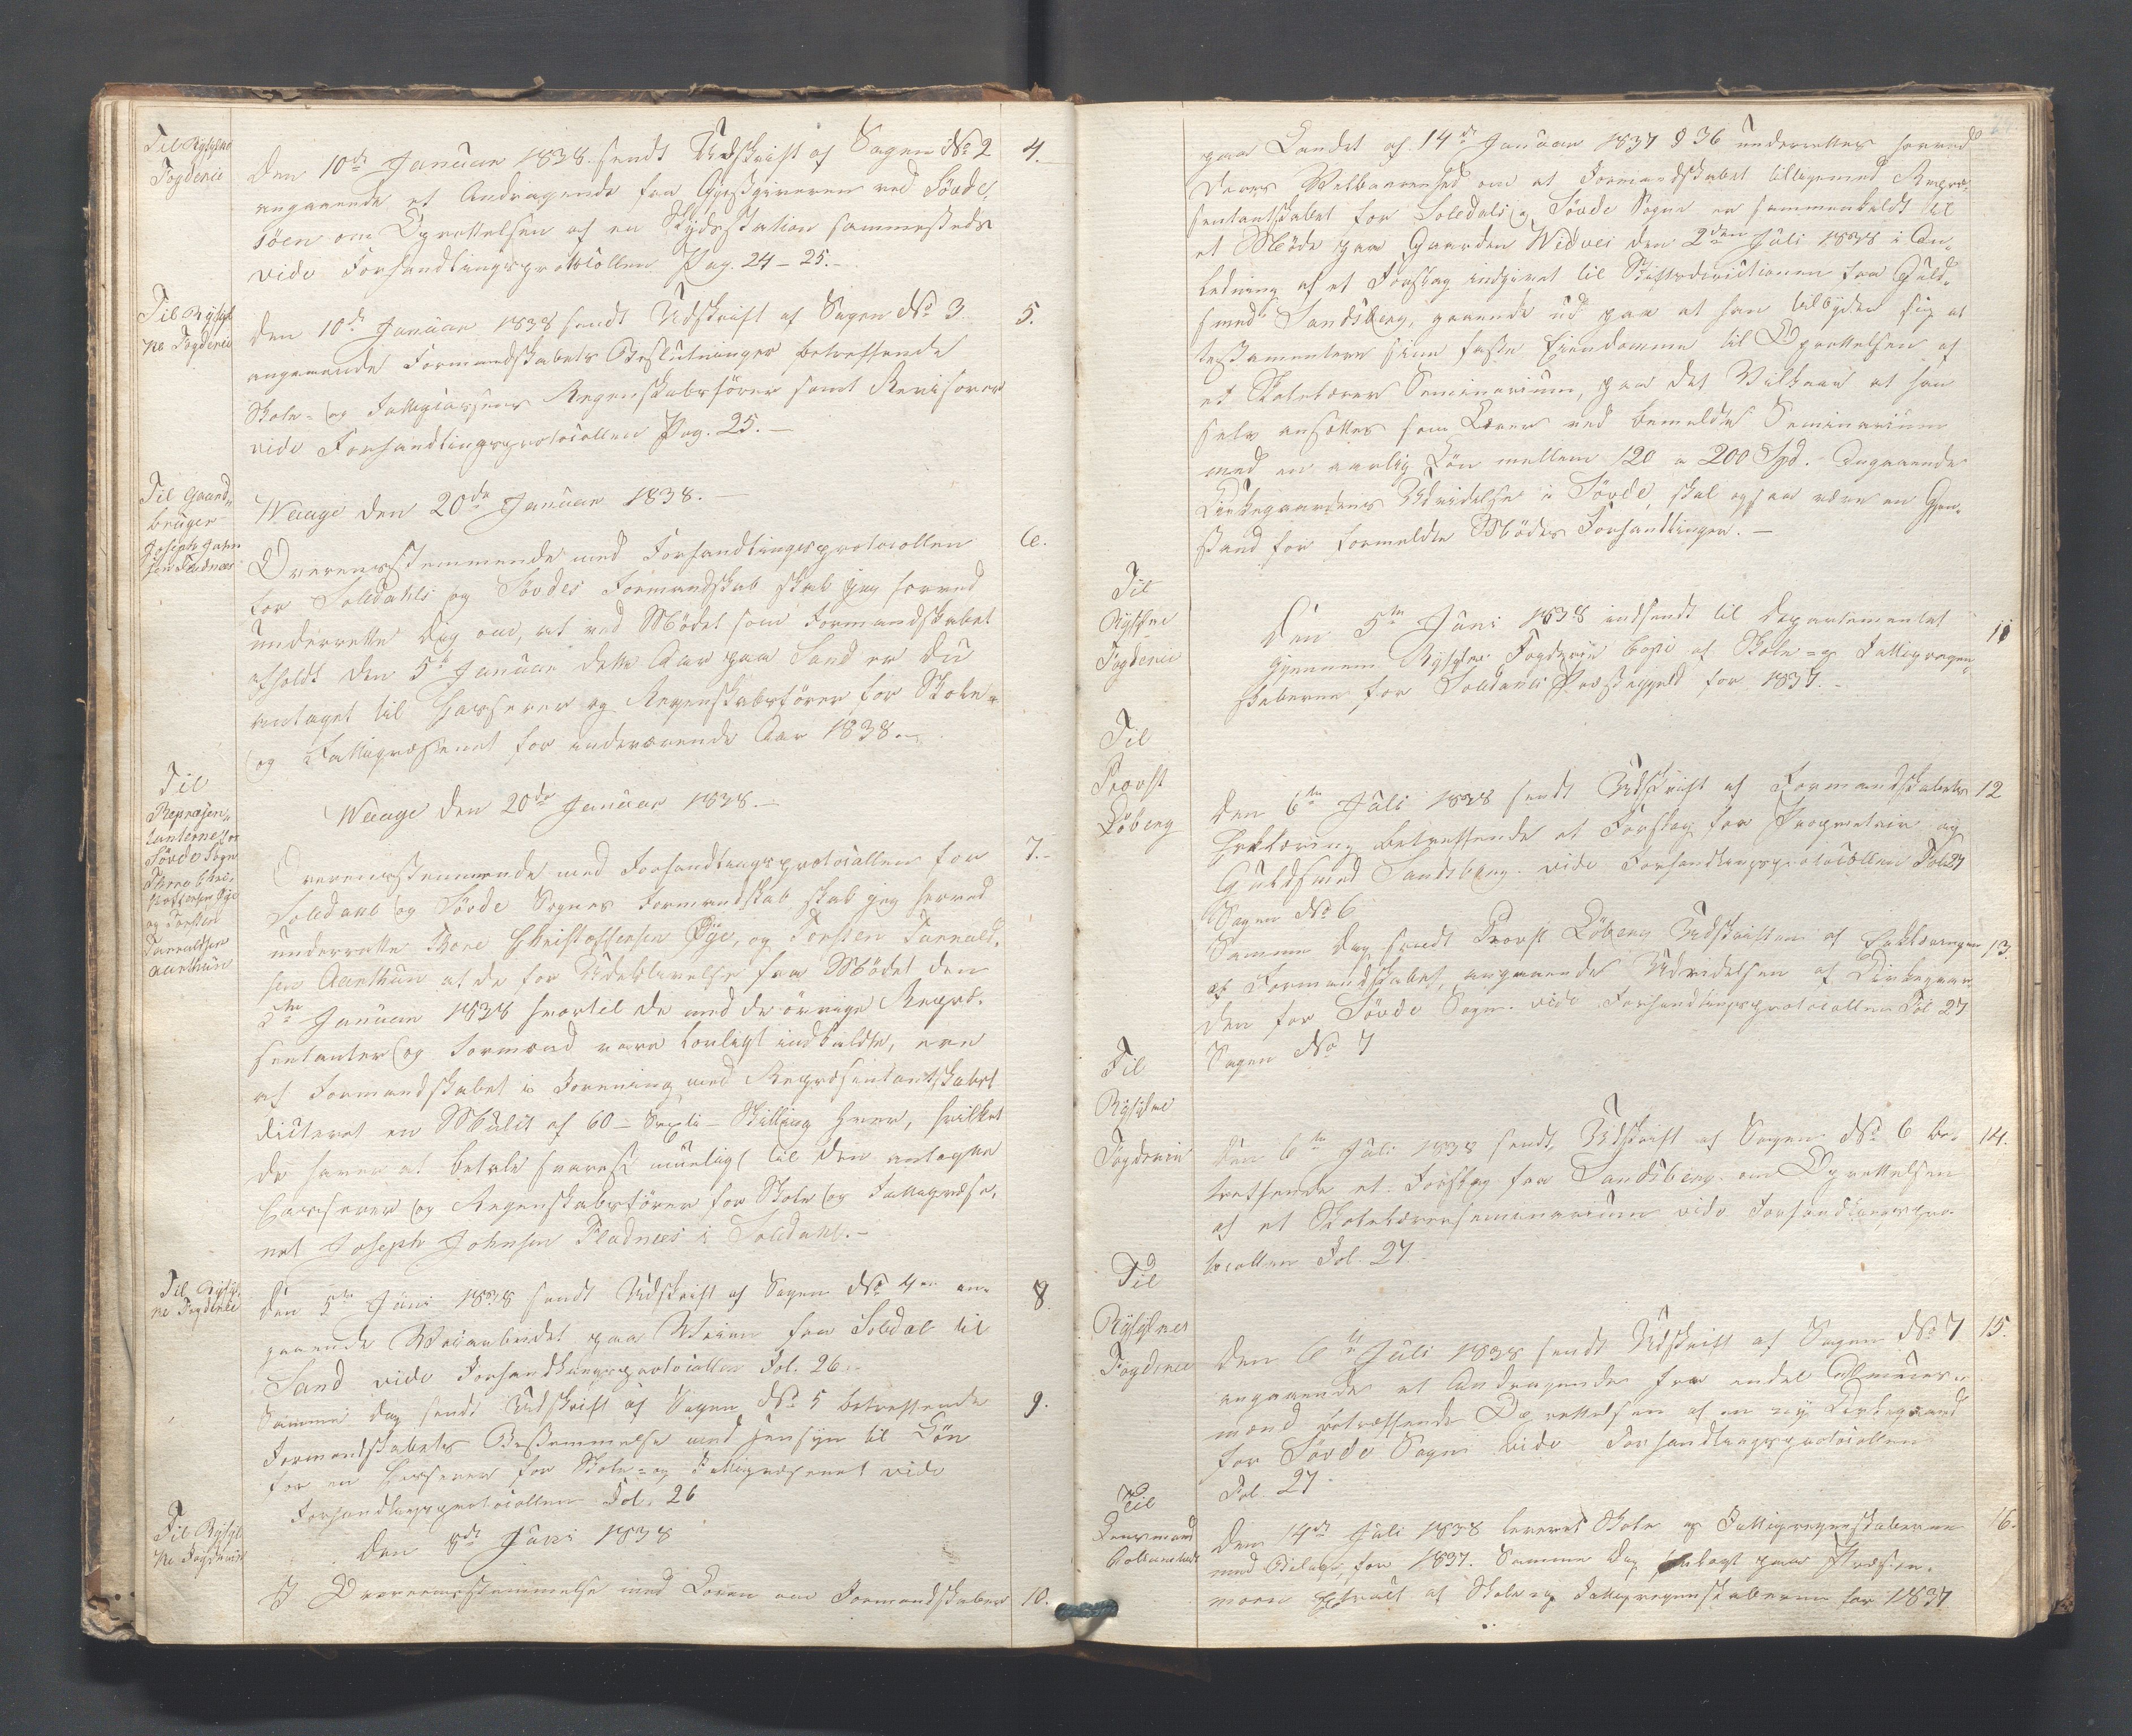 Til Rÿfylke
Fogderie
Den 10de Januar 1838 sendt Udskrift af Sagen No 2
4.
angaaende et Andragende fra Gjestgiveren ved Sövde,
söen om Oprettelsen af en Skydsstation sammesteds
vide Forhandlingsprotocollen Pag. 24-25.
Til Rÿfyl
ke Fogderie
den 10de Januar 1838 sendt Udskrift af Sagen No 3
5.
angaaende Formandskabets Beslutninger betreffende
Skole- og Fattigcassens Regenskabsförer samt Revisorer
vide Forhandlingsprotocollen Pag. 25.-
Til Gaard,,
bruger
Joseph John
sen Fladnæs
Waage den 20de Januar 1838.-
Overensstemmende med Forhandlingsprotocollen
6.
for Soledahls og Sövdes Formandskab skal jeg herved
underrette dig om, at ved Mödet som Formandskabet
afholdt den 5te Januar dette Aar paa Sand er Du
antaget til Casserer og Regenskabsförer for Skole-
og Fattigvæsenet for indeværende Aar 1838.-
Til
Repræsen,,
tanterne for
Sövde Sogn
Thore Chri-
stoffersen Öie
og Torsten
Tarraldsen
Aarthun
Waage den 20de Januar 1838.-
Overensstemmende med Forhandlingsprotocollen for
7.-
Soledahl og Sövde Sognes Formandskab skal jeg herved
underrette Thore Christoffersen Öÿe, og Torsten Tarrald,
sen Aarthun at de for Udeblivelse fra Mödet den
5te Januar 1838 hvortil de med de övrige Repræ-
sentanter og Formænd vare lovligt indkaldte, ere
af Formandskabet i Forening med Repræsentantskabet
dicteret en Mulct af 60 - Sexti - Skilling hver, hvilket
de haver at betale snarest mueligt til den antagne
Casserer og Regenskabsförer for Skole og Fattigvæse,
net Joseph Johnsen Fladnæs i Soledahl.-
Til Rÿfyl,
ke Fogderie
den 5te Juni 1838 sendt Udskrift af Sagen No 4 an-
8
gaaende Veiarbeidet paa Veien fra Soledal til
Sand vide Forhandlingsprotocollen Fol. 26.
Samme dag sendt Udskrift af Sagen No 5 betreffende
9.
Formandskabets Bestemmelse med Hensyn til Lön
for en Casserer for Skole- og Fattigvæsenet vide
Forhandlingsprotocollen Fol. 26
Til Rÿfyl
ke Fogderie
den 8de Juni 1838
I Overensstemmelse med Loven om Formandskaber
10.
paa Landet af 14de Januar 1837 § 36 underrettes herved
Deres Velbaarenhed om at Formandskabet tilligemed Repræ,
sentantskabet for Soledals og Sövde Sogne er sammenkaldt til
et Möde paa Gaarden Widvei den 2den Juli 1838 i An-
ledning af et Forslag indgivet til Stiftsdirectionen fra Guld,
smed Sandsberg, gaaende ud paa at han tilbyder sig at
testamentere sine faste Eiendomme til Oprettelsen af
et Skolelærer Seminarium, paa det Vilkaar at han
selv ansættes som Lærer ved bemeldte Seminarium
med en aarlig Lön mellem 120 a 200 Spd. Angaaende
Kirkegaardens Udvidelse i Sövde, skal ogsaa være en Gjen-
stand for formeldte Mödes Forhandlinger.-
Til
Rÿfylke
Fogderie
Den 5te Juni 1838 indsendt til Departementet
11
gjennem Rÿfylke Fogderie Copi af Skole- og Fattigregen-
skaberne for Soledahls Præstegjeld for 1837.-
Til
Provst
Löberg
den 6te Juli 1838 sendt Udskrift af Formandskabets
12
Erklæring betreffende et Forslag fra Proprietair og
Guldsmed Sandsberg. vide Forhandlingsprotocollen Fol 27
Sagen No 6
Samme dag sendt Provst Löberg Udskriften af Erklæringen
13.
af Formandskabet, angaaende Udvidelsen af Kirkegaar
den for Sövde Sogn. vide Forhandlingsprotocollen Fol 27
Sagen No 7
Til
Rÿfylke
Fogderie
Den 6te Juli 1838 sendt Udskrift af Sagen No 6 be-
14.
treffende et Forslag fra Sandsberg om Oprettelsen
af et Skolelærerseminarium vide Forhandlingspro-
tocollen Fol. 27.
Til
Rÿfylkes
Fogderie
den 6te Juli 1838 sendt Udskrift af Sagen No 7
15.
angaaende et Andragende fra endel Almues-
mænd betræffende Oprettelsen af en ny Kirkegaard
for Sövde Sogn vide Forhandlingsprotocollen
Fol. 27.
Til
Lensmand
den 14de Juli 1838 leveret Skole og Fattigregenskaberne
16.
med Bilage, for 1837. Samme Dag frelagt paa
Extract af Skole og Fattigregenskaberne for 1837